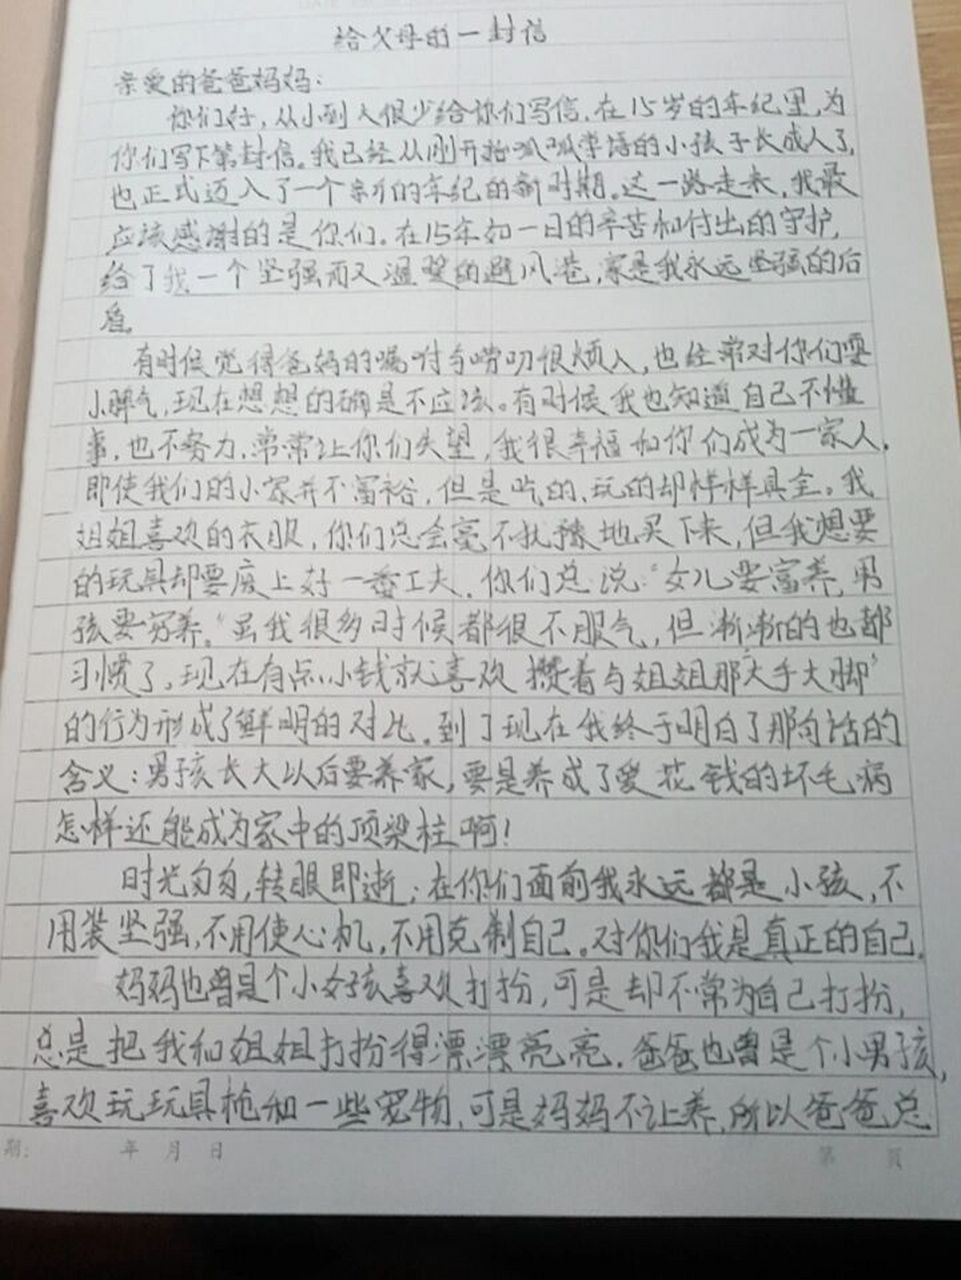 给父母的一封信
亲爱的爸爸妈妈:
你们好,从小到大很少给你们写信,在15岁的年纪里,为
你们写下第封信。我已经从刚开始呱呱学语的小孩子长成人了,
也正式迈入了一个崭新的年纪的新时期。这一路走来,我最
应该感谢的是你们。在15年如一日的辛苦和付出的守护,
给了我一个坚强而又温暖的避风港,家是我永远坚强的后
盾。
有时候觉得爸妈的嘱咐与唠叨很烦人,也经常对你们耍
小脾气,现在想想的确是不应该。有时候我也知道自己不懂
事,也不努力,常常让你们失望,我很幸福和你们成为一家人。
即使我们的小家并不富裕,但是吃的、玩的却样样具全。我
姐姐喜欢的衣服,你们总会毫不犹豫地买下来,但我想要
的玩具却要废上好一番工夫。你们总说:“女儿要富养,男
孩要穷养。”虽我很多时候都很不服气,但渐渐的也都
习惯了,现在有点小钱就喜欢攒着与姐姐那“大手大脚”
的行为形成了鲜明的对比。到了现在我终于明白了那句话的
含义:男孩长大以后要养家,要是养成了爱花钱的坏毛病
怎样还能成为家中的顶梁柱啊!
时光匆匆,转眼即逝;在你们面前我永远都是小孩,不
用装坚强,不用使心机,不用克制自己。对你们我是真正的自己。
妈妈也曾是个小女孩喜欢打扮,可是却不常为自己打扮,
总是把我和姐姐打扮得漂漂亮亮。爸爸也曾是个小男孩,
喜欢玩玩具枪和一些宠物,可是妈妈不让养,所以爸爸总
期: 年 月 日 第 页